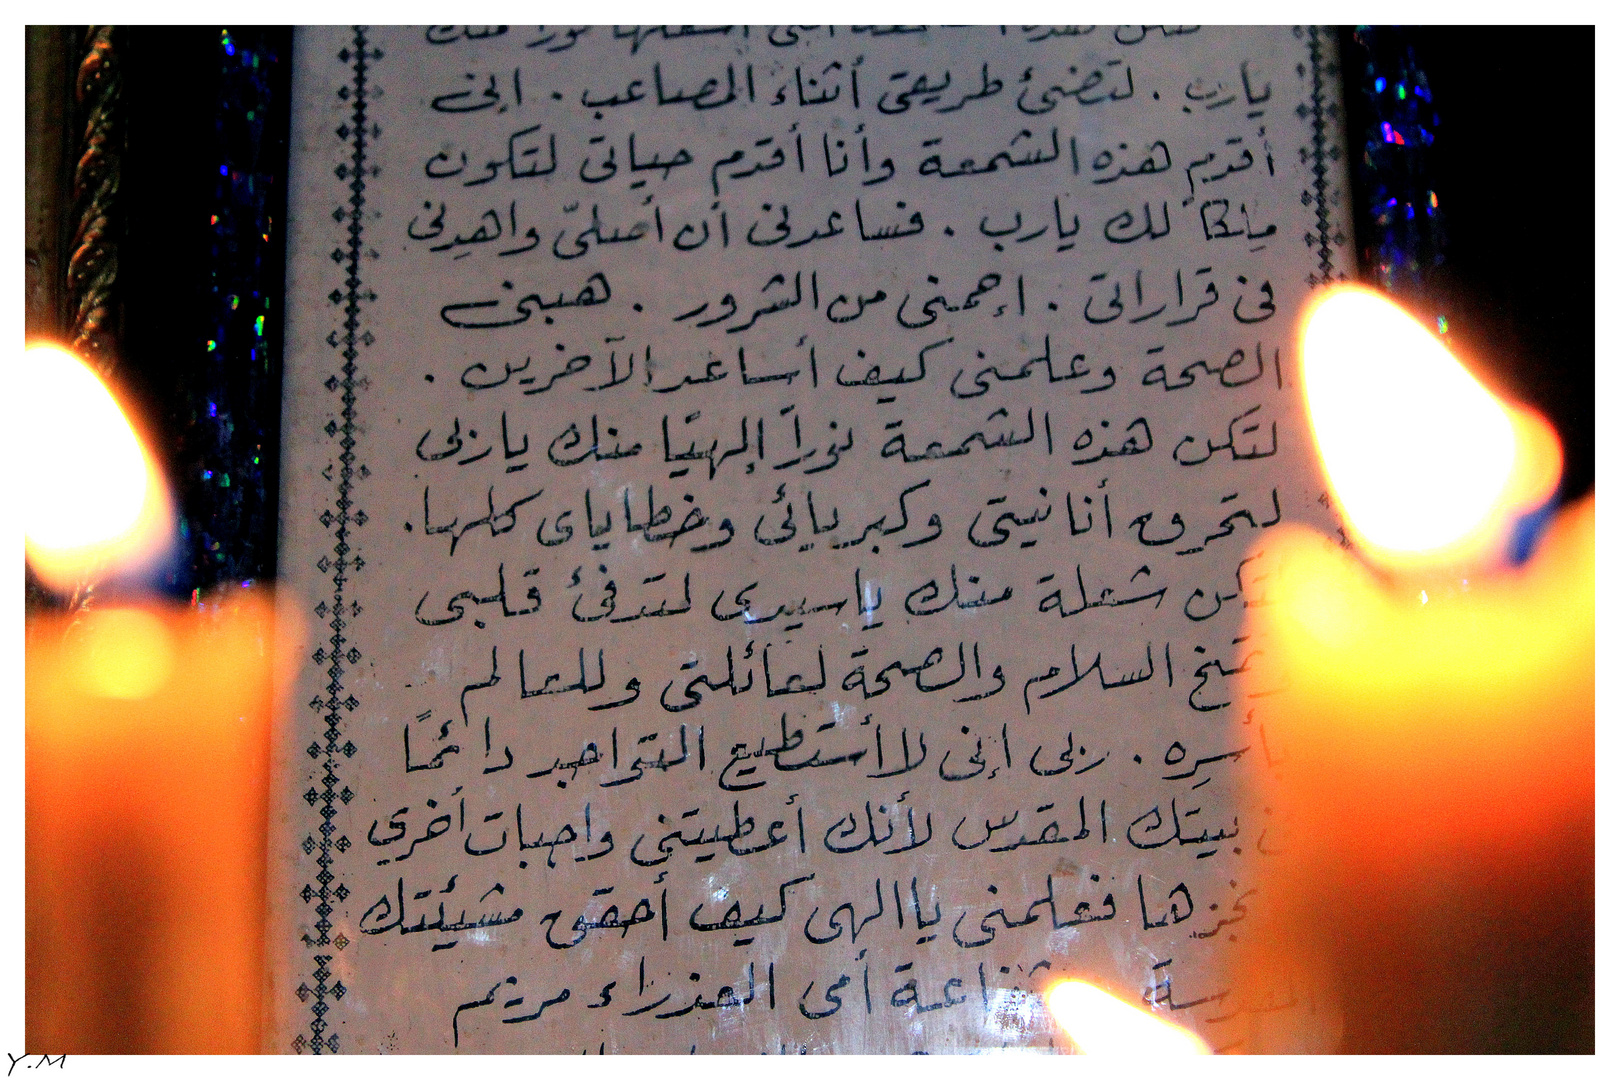 لتكن هذه الشمعة التى أشعلها نوراً منك
يارب . لتضئ طريقى أثناء المصاعب . إنى
أقدم هذه الشمعة وأنا أقدم حياتى لتكون
ملكاً لك يارب . فساعدنى أن أصلىّ واهدِنى
فى قراراتى . إحمنى من الشرور . هبنى
الصحة وعلمنى كيف أساعد الآخرين .
لتكن هذه الشمعة نوراً إلهيًا منك ياربى
لتحرق أنانيتى وكبريائى وخطاياى كلها .
لتكن شعلة منك ياسيدى لتدفئ قلبى
وتمنح السلام والصحة لعائلتى وللعالم
بأسرِه . ربى إنى لا أستطيع التواجد دائمًا
بيتك المقدس لأنك أعطيتنى واجبات أخري
فعلمنى ياالهى كيف أحقق مشيئتك
أمى العذراء مريم
Y.M